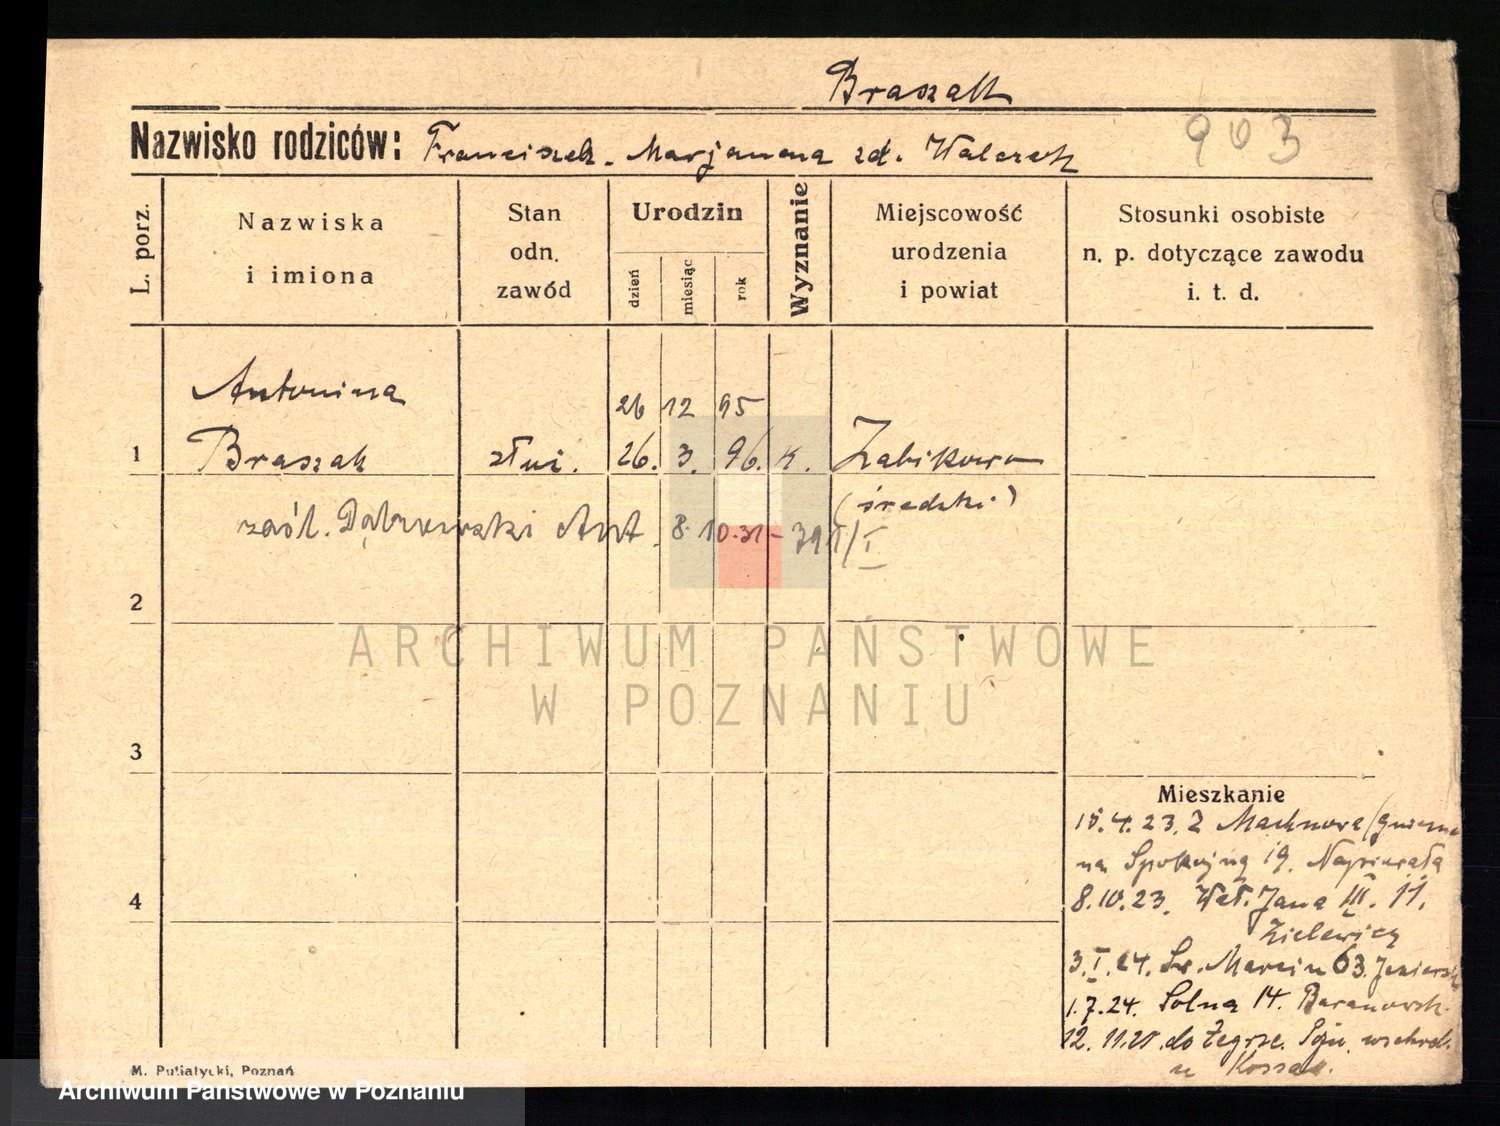 Braszak
Nazwisko rodziców: Franciszek. Marjanna zd. Walczak
903
L. porz.
Nazwiska
i imiona
Stan
odn.
zawód
Urodzin
dzień
miesiąc
rok
Wyznanie
Miejscowość
urodzenia
i powiat
Stosunki osobiste
n. p. dotyczące zawodu
i. t. d.
Antonina
26 12 95
1 Braszak służ. 26. 3. 96. k. Żabikowo
(średzki)
zaśl. Dąbrowski Ant. 8.10.31
2
3
4
Mieszkanie
15.4.23. Z
na Spokojną 19.
8.10.23. Jana III. 11.
3.I.24. Św. Marcin 63.
1.7.24. Solna 14. Baranowsk.
12. 11.25 do Żegrze.
u
M. Putiatycki, Poznań
ARCHIWUM PAŃSTWOWE
W POZNANIU
Archiwum Państwowe w Poznaniu